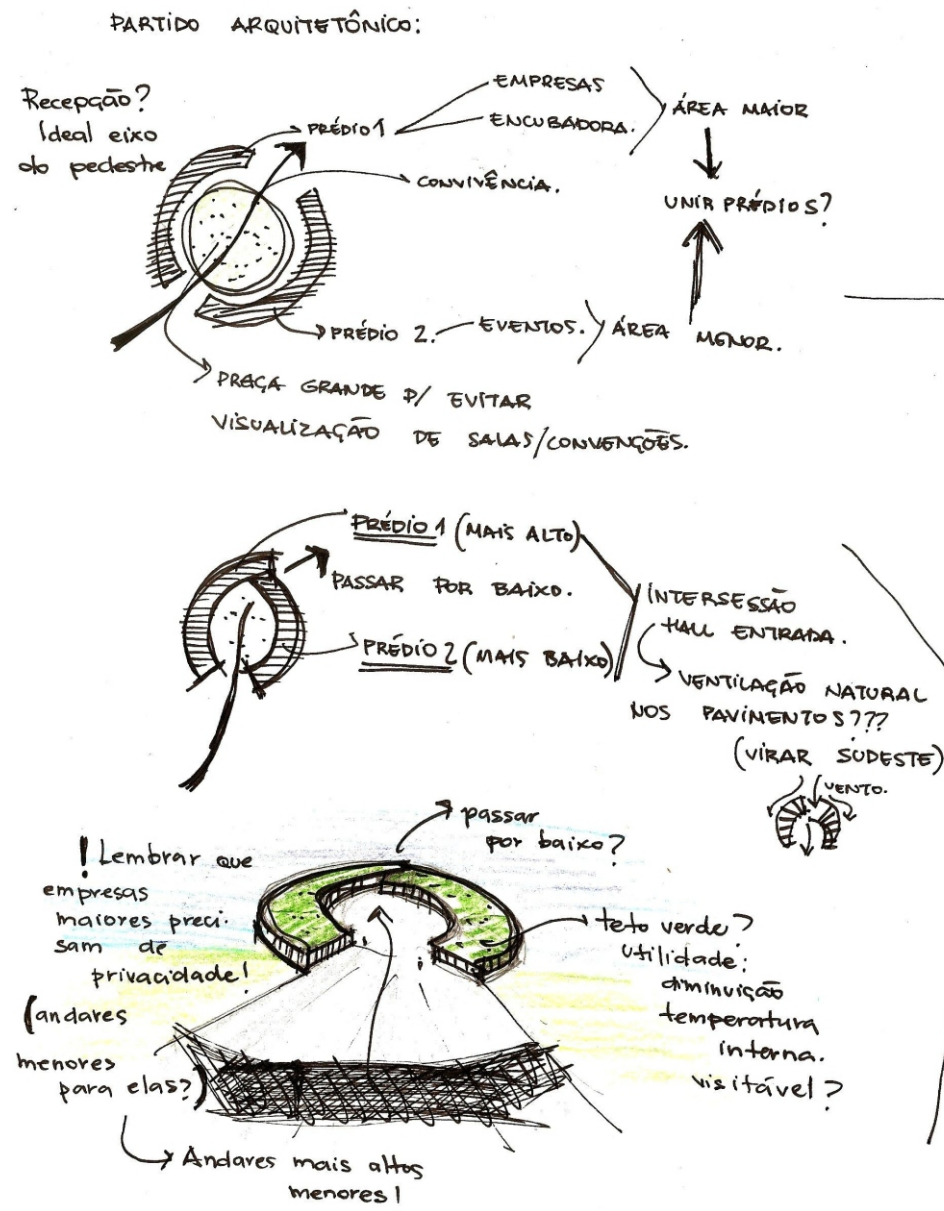 PARTIDO ARQUITETÔNICO:
Recepção?
Ideal eixo
do pedestre
PRÉDIO 1
EMPRESAS
ENCUBADORA.
ÁREA MAIOR
CONVIVÊNCIA.
UNIR PRÉDIOS?
PRÉDIO 2.
EVENTOS.
ÁREA MENOR.
PRAÇA GRANDE P/ EVITAR
VISUALIZAÇÃO DE SALAS/CONVENÇÕES.
PRÉDIO 1 (MAIS ALTO)
PASSAR POR BAIXO.
PRÉDIO 2 (MAIS BAIXO)
INTERSESSÃO
HALL ENTRADA.
VENTILAÇÃO NATURAL
NOS PAVIMENTOS???
(VIRAR SUDESTE)
VENTO.
passar
por baixo?
! Lembrar que
empresas
maiores preci-
sam de
privacidade!
(andares
menores
para elas?)
Andares mais altos
menores!
teto verde?
Utilidade:
diminuição
temperatura
interna.
visitável?